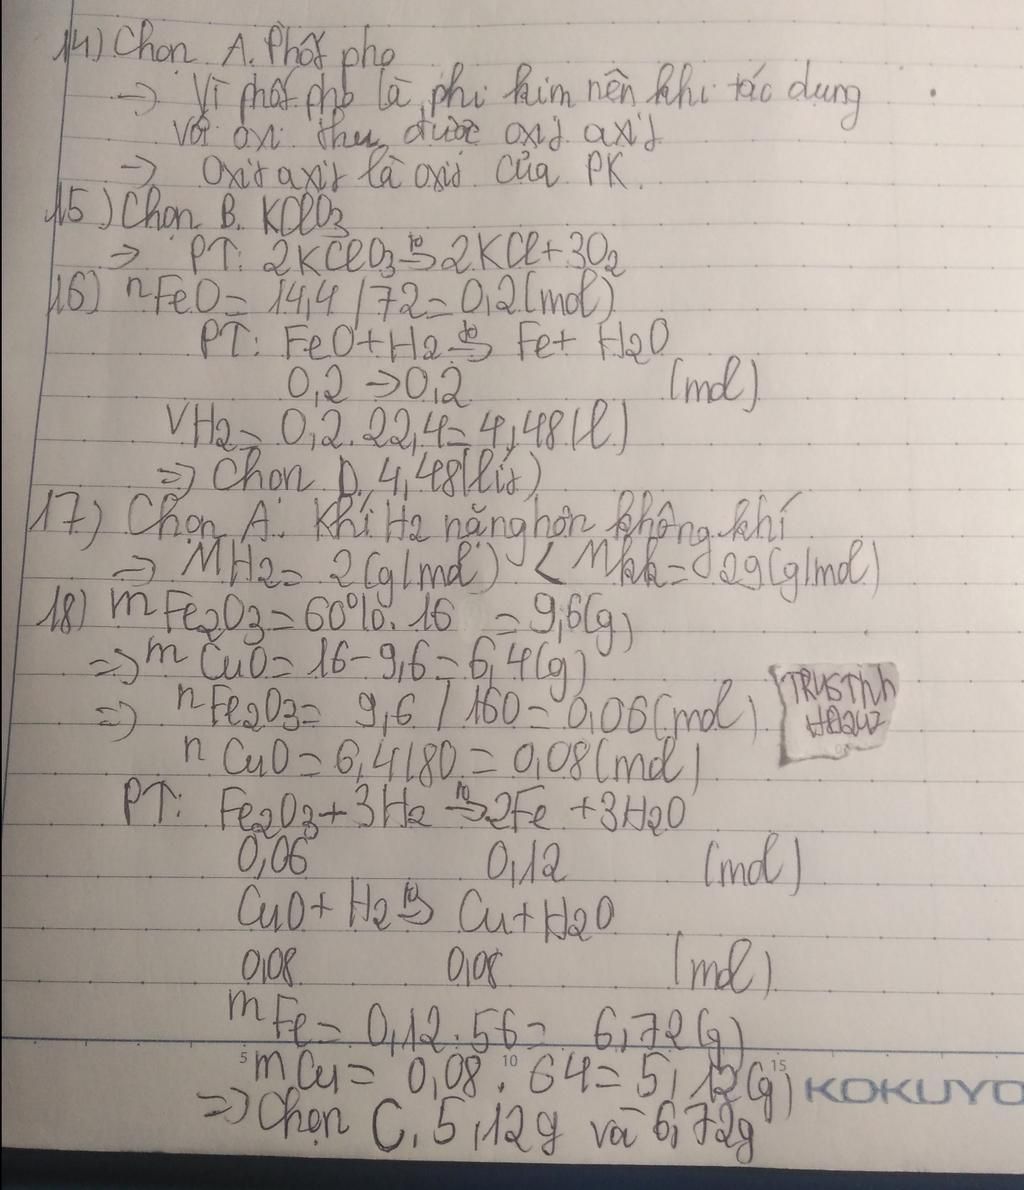 14) Chọn A. Phốt pho
=> Vì phốt pho là phi kim nên khi tác dụng
với oxi thu được oxit axit
=> Oxit axit là oxit của PK.
15) Chọn B. KClO3
=> PT: 2KClO3 tº=> 2KCl+3O2
16) nFeO = 14,4/72=0,2(mol)
PT: FeO+H2 tº=> Fe+ H2O
0,2 ->0,2 (mol)
VH2= 0,2.22,4=4,48(l)
=> Chọn D. 4,48(lít)
17) Chọn A. Khí H2 nặng hơn không khí
=> MH2= 2(g/mol) < Mkk= 29(g/mol)
18) mFe2O3=60%.16 =9,6(g)
=> mCuO=16-9,6=6,4(g)
=> nFe2O3= 9,6/160=0,06(mol)
TRUSTNN
HĐ247
nCuO=6,4/80=0,08(mol)
PT: Fe2O3+3H2 tº=> 2Fe +3H2O
0,06 0,12 (mol)
CuO+H2 tº=> Cu+H2O
0,08 0,08 (mol)
mFe= 0,12.56= 6,72(g)
5 10 15
mCu= 0,08.64=5,12(g)
KOKUYO
=> Chọn C. 5,12g và 6,72g